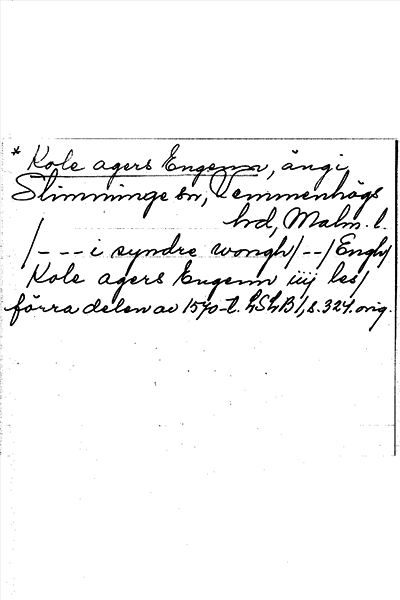 * Kole agers Engenn, äng i
Slimminge sn, Vemmenhögs
hd, Malm. l.
/--- i syndre wongh/--/Engh/
Kole agers Engenn iiij les/
förra delen av 1570-t. LSLB 1, s. 324. orig.